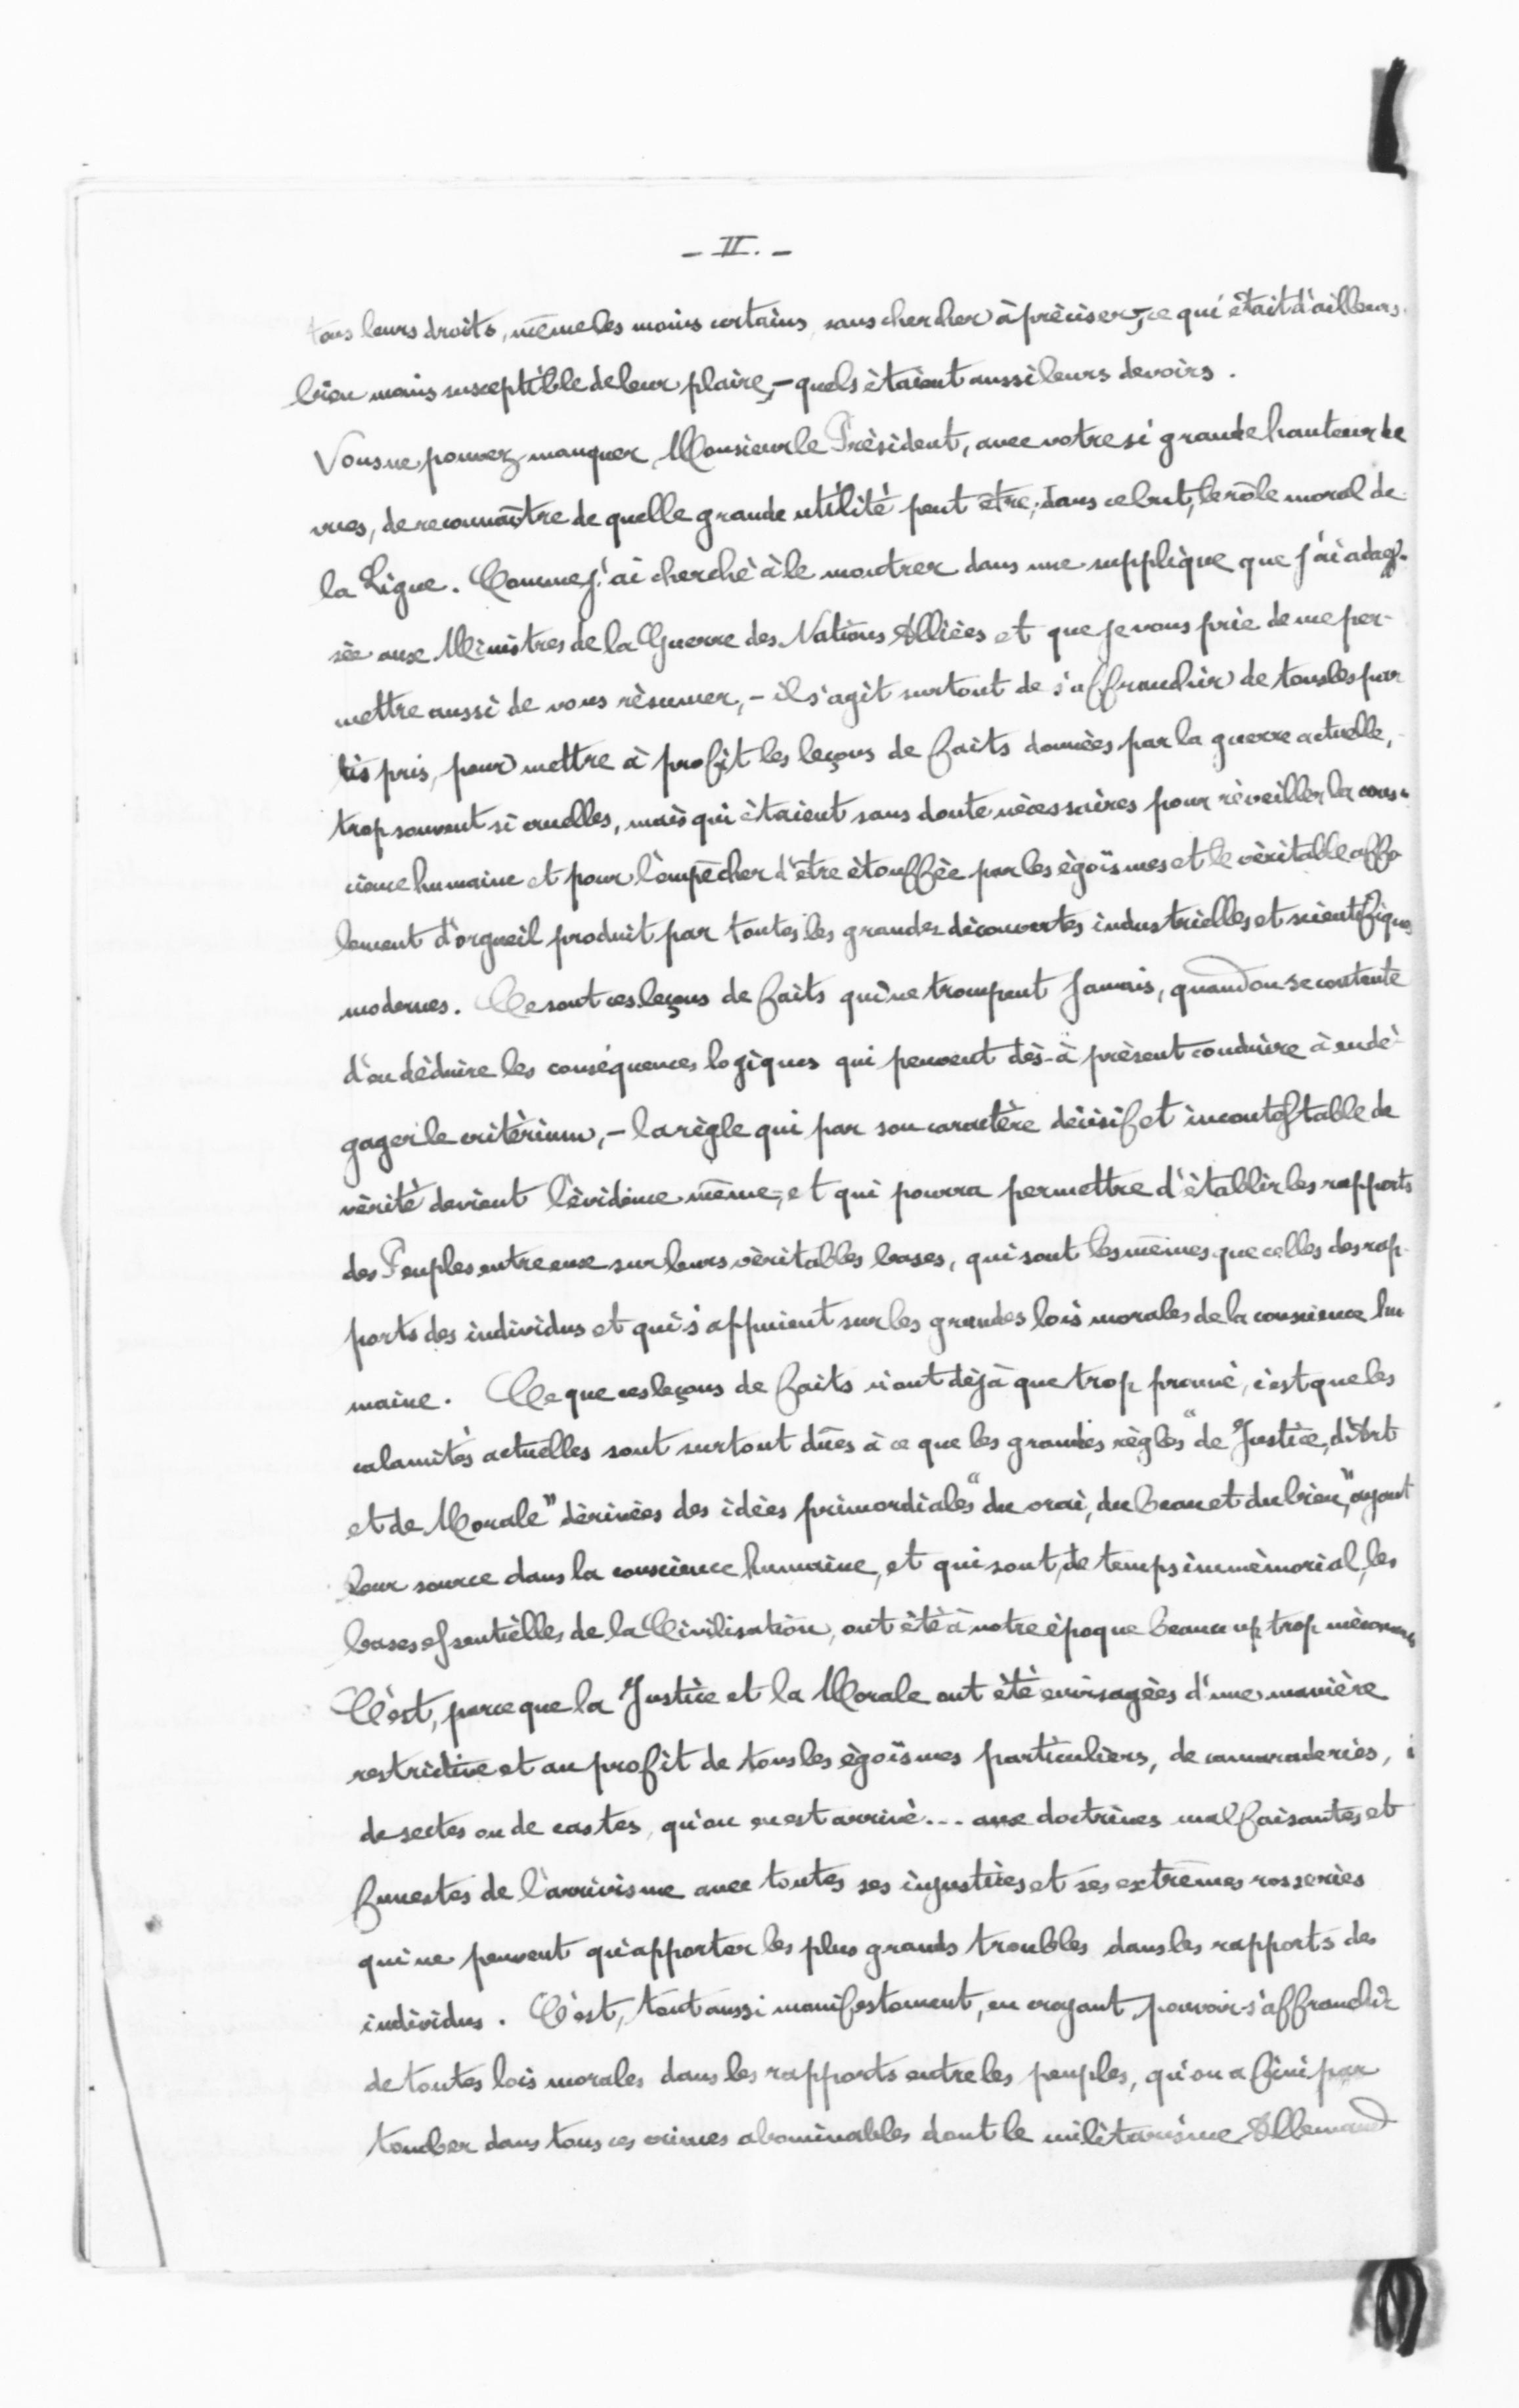 - II. -
tous leurs droits, même les moins certains, sans chercher à préciser, ce qui était d'ailleurs
bien moins susceptible de leur plaire, - quels étaient aussi leurs devoirs.
Vous ne pouvez manquer, Monsieur le Président, avec votre si grande hauteur de
vues, de reconnaître de quelle grande utilité peut être, dans ce but, le rôle moral de
la Ligue. Comme j'ai cherché à le montrer dans une supplique que j'ai adres-
sée aux Ministres de la Guerre des Nations Alliées et que je vous prie de me per-
mettre aussi de vous résumer, - il s'agit surtout de s'affranchir de tous les par
tis pris, pour mettre à profit les leçons de faits données par la guerre actuelle, -
trop souvent si cruelles, mais qui étaient sans doute nécessaires pour réveiller la cons-
cience humaine et pour l'empêcher d'être étouffée par les égoïsmes et le véritable affo
lement d'orgueil produit par toutes les grandes découvertes industrielles et scientifiques
modernes. Ce sont ces leçons de faits qui ne trompent jamais, quand on se contente
d'en déduire les conséquences logiques qui peuvent dès-à présent conduire à en dé-
gager le critérium, - la règle qui par son caractère décisif et incontestable de
vérité devient l'évidence même, et qui pourra permettre d'établir les rapports
des Peuples entre eux sur leurs véritables bases, qui sont les mêmes que celles des rap-
ports des individus et qui s'appuient sur les grandes lois morales de la conscience hu
maine. Ce que ces leçons de faits n'ont déjà que trop prouvé, c'est que les
calamités actuelles sont surtout dûes à ce que les grandes règles "de Justice, d'Art
et de Morale" dérivées des idées primordiales "du vrai, du beau et du bien," ayant
leur source dans la conscience humaine, et qui sont, de temps immémorial, les
bases essentielles de la Civilisation, ont été à notre époque beaucoup trop méconnues
C'est, parce que la Justice et la Morale ont été envisagées d'une manière
restrictive et au profit de tous les égoïsmes particuliers, de camaraderies,
de sectes ou de castes, qu'on en est arrivé... aux doctrines malfaisantes et
funestes de l'arrivisme avec toutes ses injustices et ses extrêmes rosseries
qui ne peuvent qu'apporter les plus grands troubles dans les rapports des
individus. C'est, tout aussi manifestement, en croyant pouvoir s'affranchir
de toutes lois morales dans les rapports entre les peuples, qu'on a fini par
tomber dans tous ces crimes abominables dont le militarisme Allemand